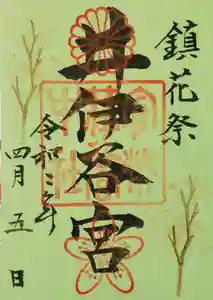 鎮花祭
井伊谷宮
令和二年
四月五日